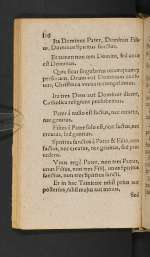 Ita Dominus Pater, Dominus Fili-
us, Dominus Spiritus sanctus.
Et tamen non tres Domini, sed unus
est Dominus.
Quia sicut singulatim unamquamq;
personam, Deum aut Dominum
Christiana veritate compellimur.
Ita tres Deos aut Dominos dicere,
Catholica religione prohibemur.
Pater à nullo est factus, nec creatus,
nec genitus.
Filius à Patre solo est, non factus, nec
creatus, sed genitus.
Spiritus sanctus à Patre & Filio, non
factus, nec creatus, nec genitus, sed pro-
cedens.
Vnus ergò Pater, non tres Patres,
unus Filius, non tres Filij, unus Spiritus
sanctus, non tres Spiritus sancti.
Et in hac Trinitate nihil prius aut
posterius, nihil majus aut minus,
Sed